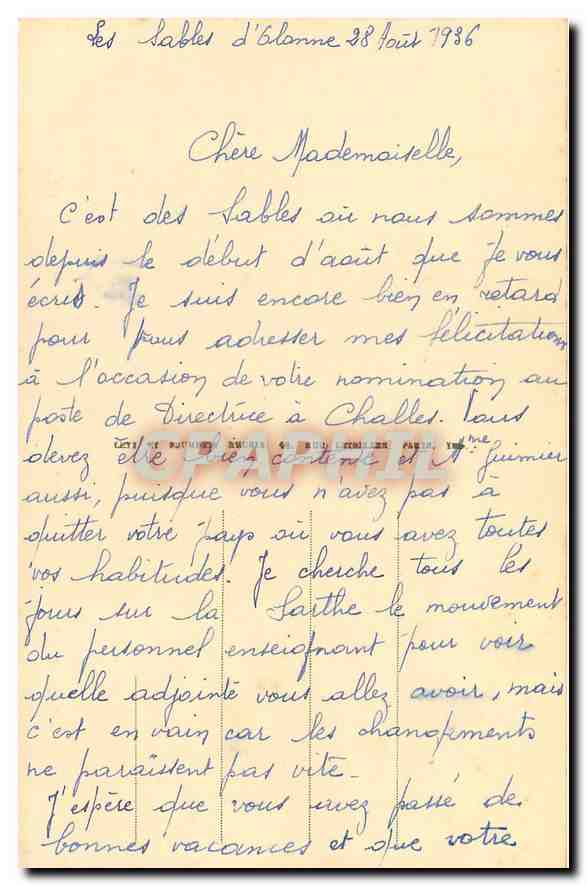 Les Sables d'Olonne 28 Août 1936
Chère Mademoiselle,
C'est des Sables où nous sommes
depuis le début d'août que je vous
écris. Je suis encore bien en retard
pour vous adresser mes félicitations
à l'occasion de votre nomination au
poste de Directrice à Challes. Vous
LEVY ET NEURDEIN REUNIS 44, RUE LETELLIER PARIS,
devez être bien contente et Mme Guimier
CPAPHIL
aussi, puisque vous n'avez pas à
quitter votre pays où vous avez toutes
vos habitudes. Je cherche tous les
jours sur la Sarthe le mouvement
du personnel enseignant pour voir
quelle adjointe vous allez avoir, mais
c'est en vain car les changements
ne paraissent pas vite.
J'espère que vous avez passé de
bonnes vacances et que votre